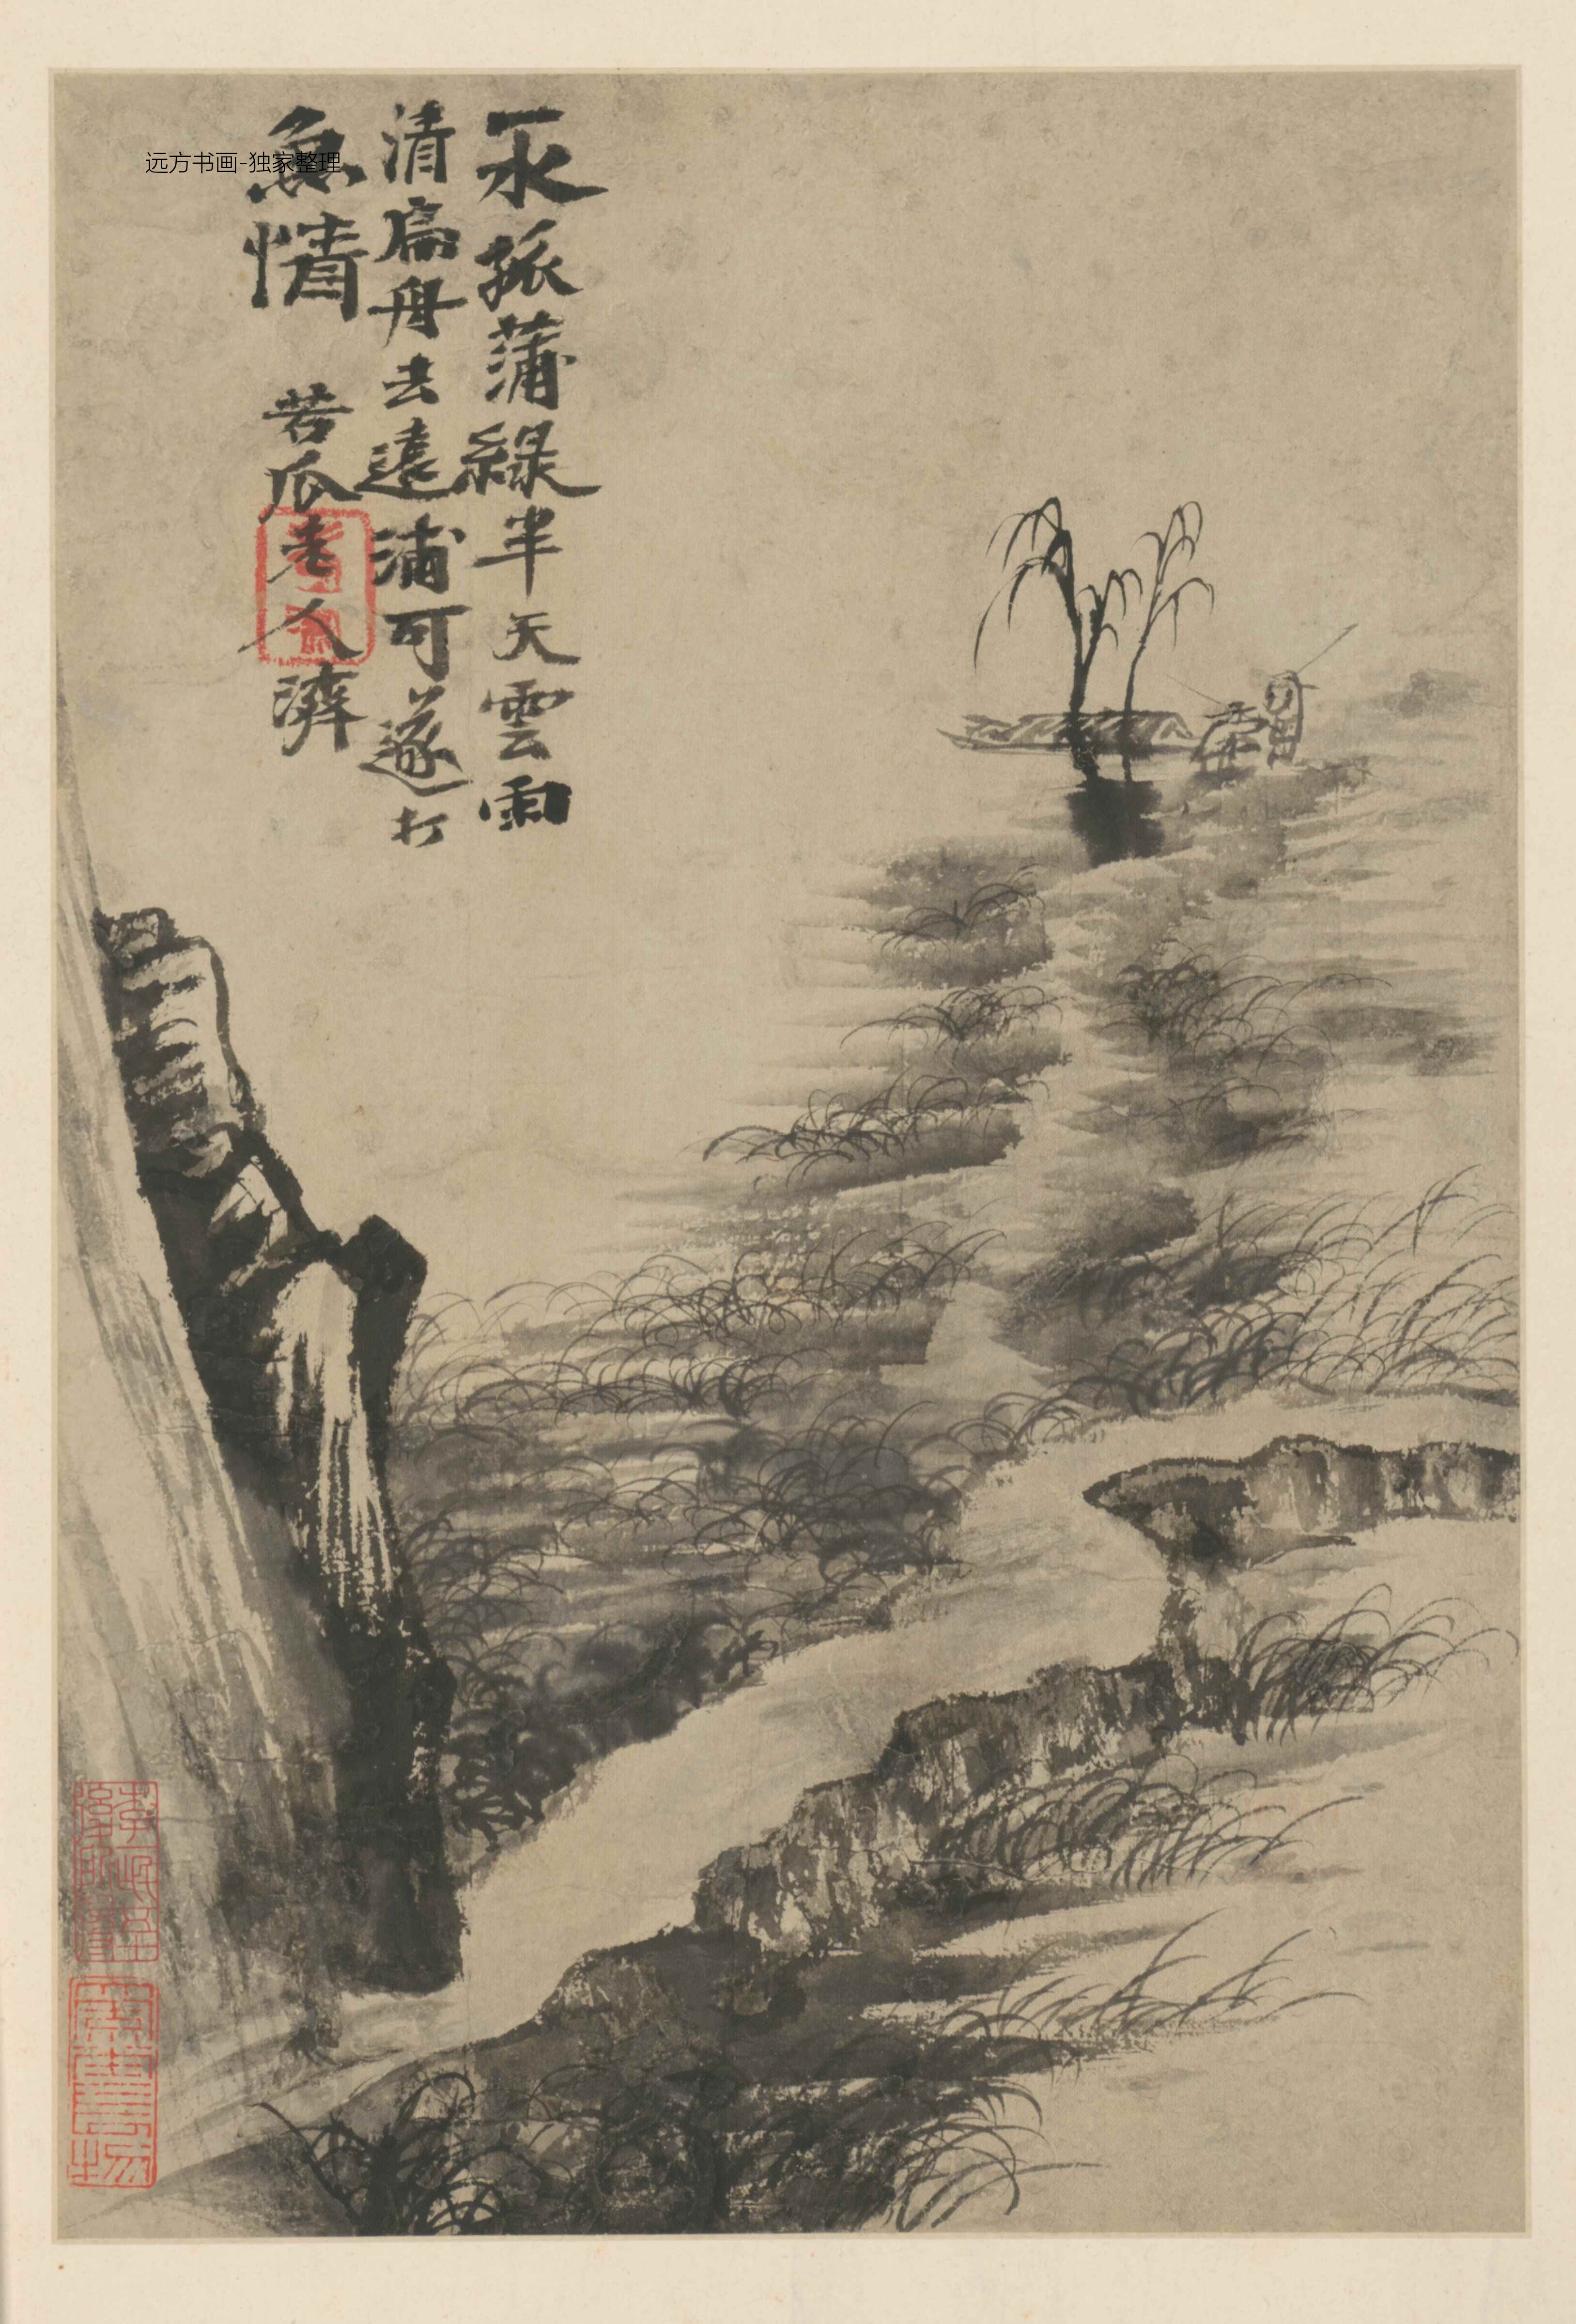 一水孤蒲綠半天雲雨
清扁舟去遠浦可遂打
魚情
苦瓜老人濟
远方书画-独家整理